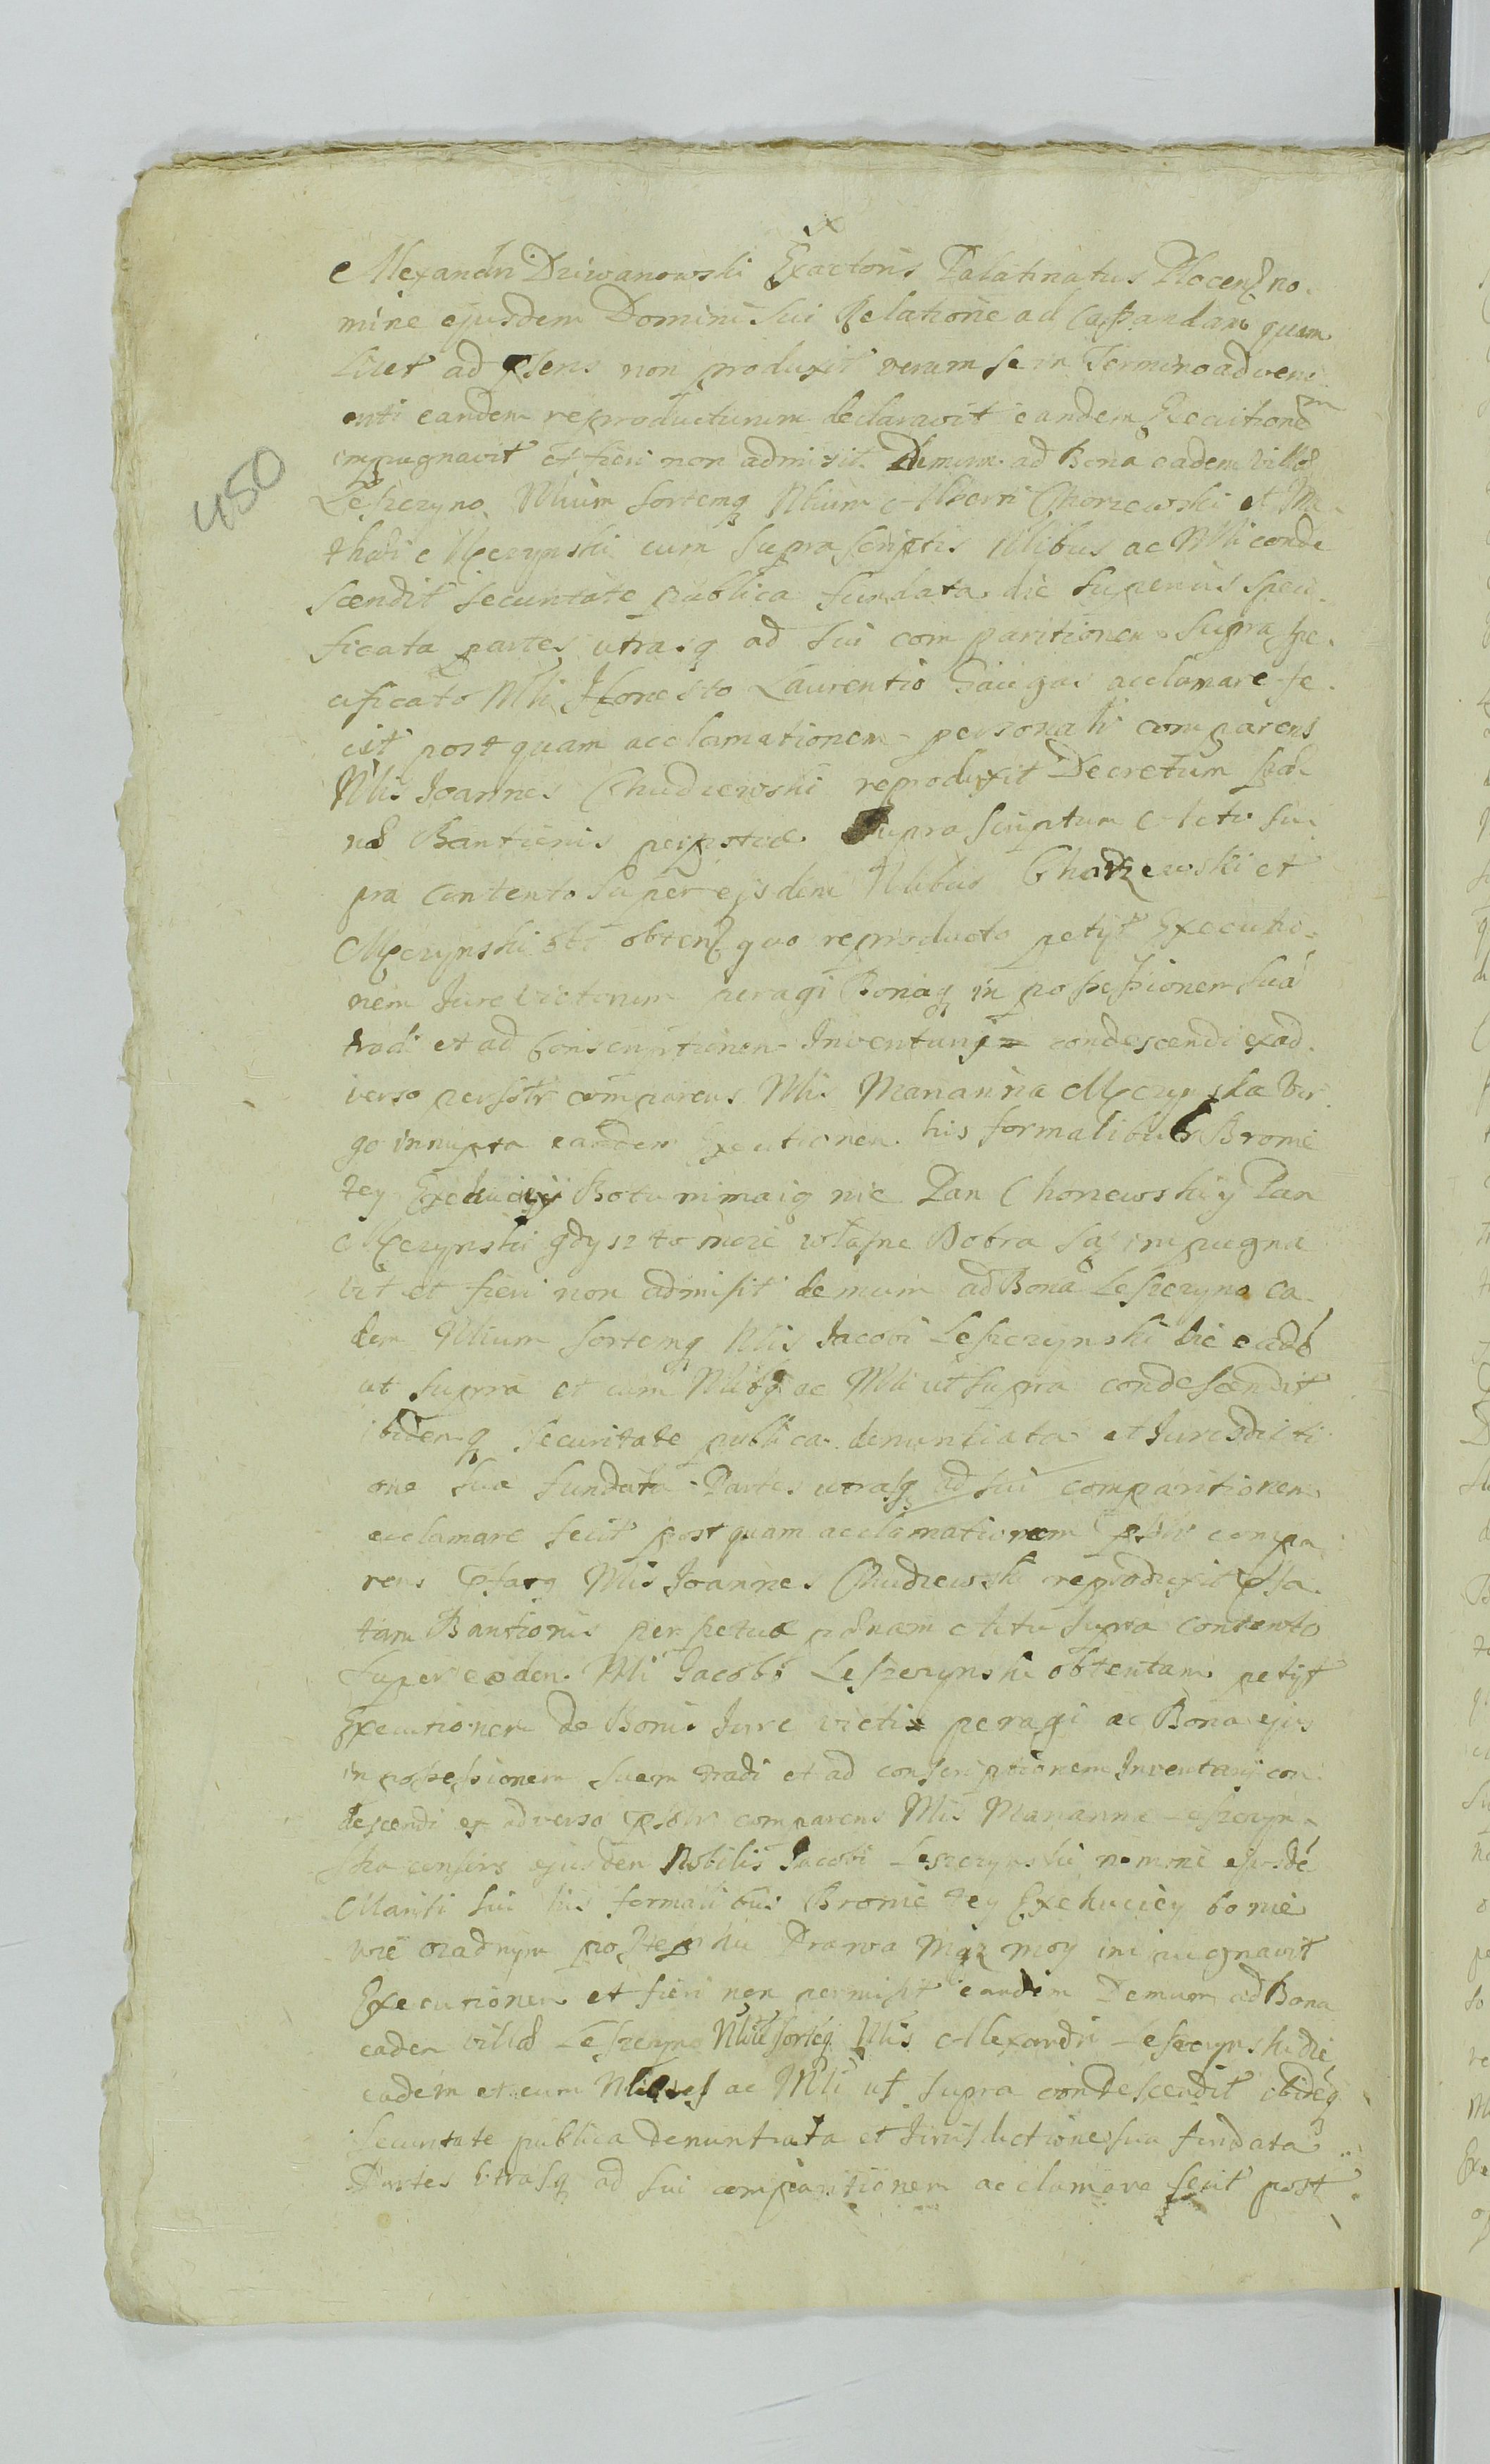 Alexandri Dziwanowski Exactoris Palatinatus Plocen no
mine ejusdem Domini sui Relatione ad cassandam quam
licet ad psens non produxit verum se in Termino adveni
enti eandem reproducturum declaravit eandem Executionem
impugnavit et fieri non admisit Demum ad Bona eadem villae
Leszczyno Nlium sortemq Nlium Alberti Chorzewski et Ma
thaei Mczynski cum suprascriptis Nlibus ac Mli conde
scendit securitate publica fundata die superius speci
ficata partes utrasq ad sui comparitionem supra spe
cificato Mli Honesto Laurentio acclamare fe
cit post quam acclamationem personalr comparens
Nlis Joannes Chudzewski reproduxit Decretum
Bannionis perptuae supra scriptum Actu su
pra contento super ejsdem Nlibus Chorzewski et
Mczynski obten quo reproducto petijt Executio
nem Jure victorum peragi Bonaq in possessionem sua
tradi et ad conscriptionem Inventarij condescendi ex ad
verso comparens Nlis Marianna Mczynska Vir
go innupta eandem Executionem his formalibus Bronie
tey Exekucyi Bo tu nimaią nic Pan Chorzewski y Pan
Mczynski gdysz to moie własne Dobra są impugna
vit et fieri non admisit demum ad Bona Leszczyno ea
dem Nlium sortemq Nlis Jacobi Leszczynski die eadē
ut supra et cum Nlibq ac Mli ut supra condescendit
ibidemq securitate publica denuntiata et Jurisdicti
one sua fundata Partes utrasq ad sui comparitionem
acclamare fecit post quam acclamationem psolr compa
rens Nlis Joannes Chudzewski reproduxit
tam Bannionis perpetuae paenam Actu supra contento
super eodem Nli Jacobo Leszczynski obtentam petijt
Executionem de Bonis Jure victis peragi ac Bona ejus
in possessionem suam tradi et ad conscriptionem Inventarij con
descendi ex adverso psolr comparens Nlis Marianna Leszczyn
ska consors ejusdem Nobilis Jacobi Leszczynski nomine ejusdē
Mariti sui his formalibus Bronie tey Exekuciey bo nie
wie o żadnym postępku Prawa Mąz moy impugnavit
Executionem et fieri non permisit eandem Demum ad Bona
eadem villae Leszczyno Nliū sortēq Nlis Alexandri Leszczynski die
eadem et cum Nlibus ac Mli ut supra condescendit ibidēq
securitate publica denuntiata et Jurisdictione sua fundata
Partes utrasq ad sui comparitionem acclamare fecit post
450